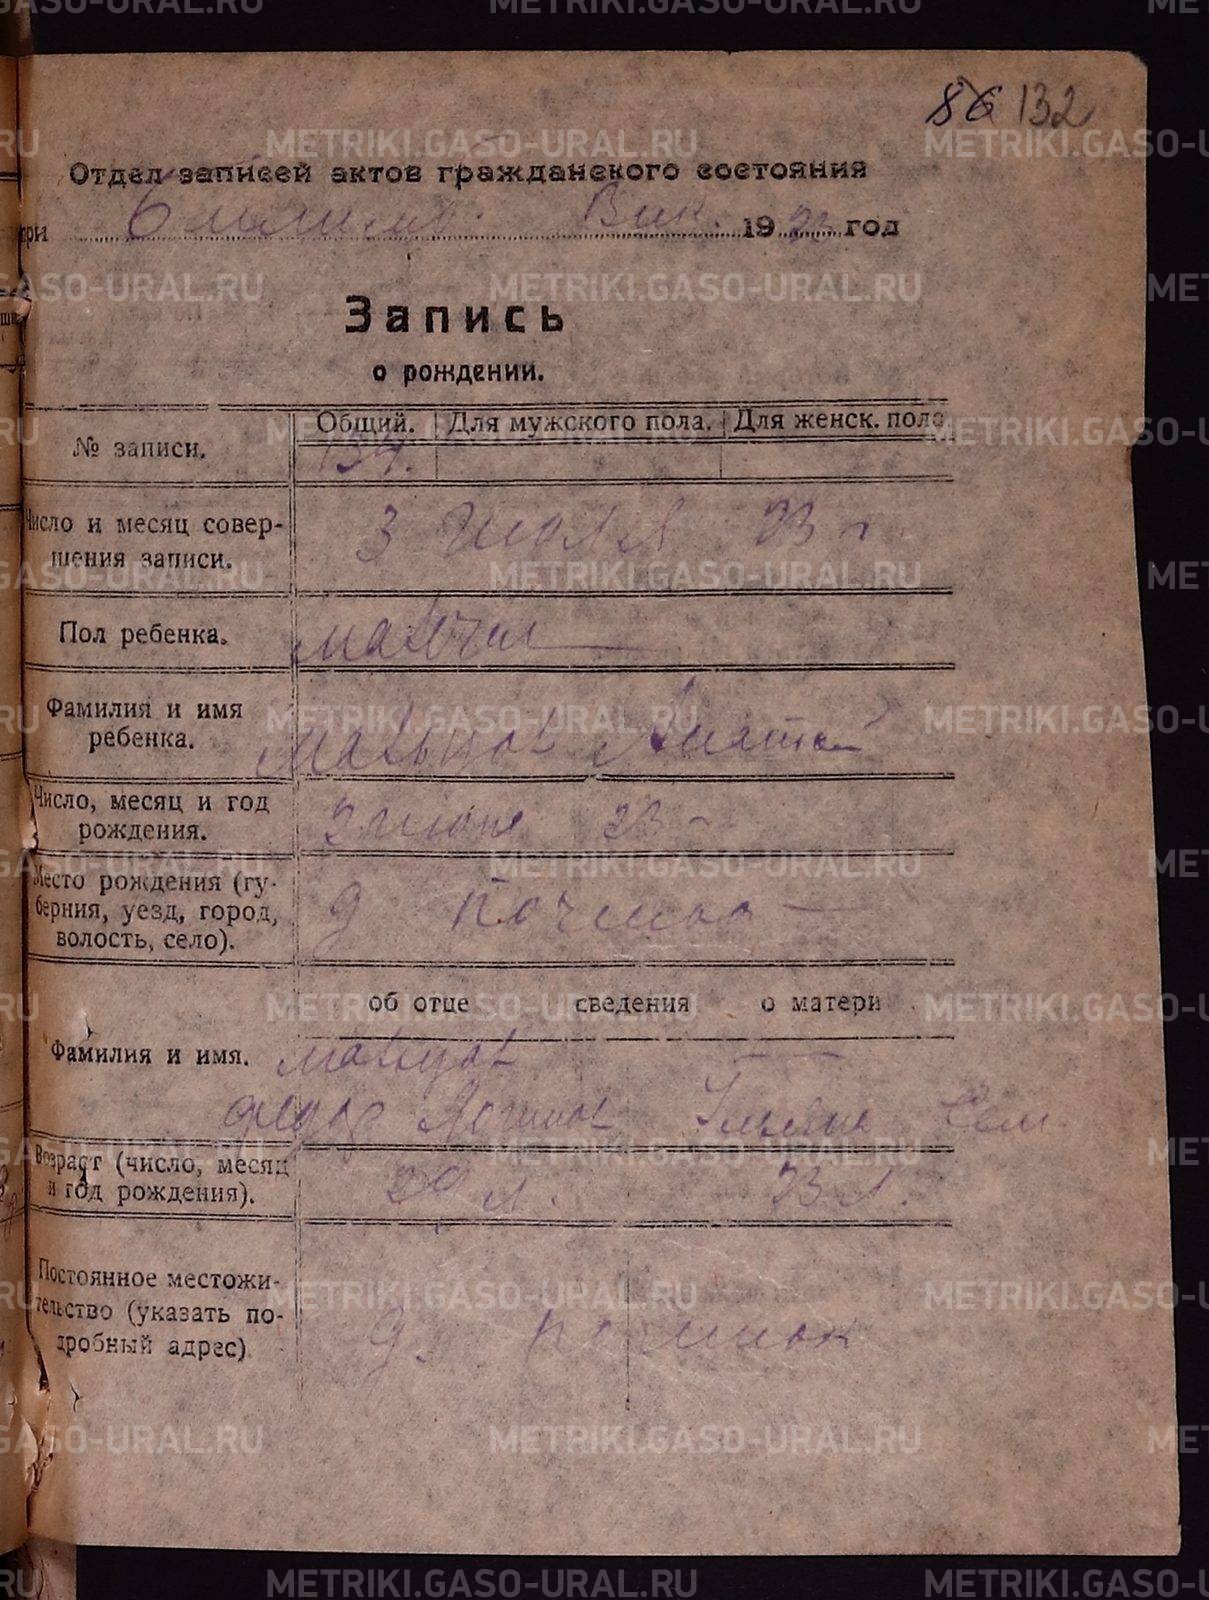 86 132
Отдел записей актов гражданского состояния
при Вик. 19 год
Запись
о рождении.
№ записи. Общий. Для мужского пола. Для женск. пола
134.
Число и месяц совер-
шения записи. 3 июля 23 г
Пол ребенка. мальчик
Фамилия и имя
ребенка. Мальцов
Число, месяц и год
рождения. июня 23
Место рождения (гу-
берния, уезд, город,
волость, село). д Починок
об отце сведения о матери
Фамилия и имя. Мальцов
Федор Логинов Ульяна Сем.
Возраст (число, месяц
и год рождения). 29 л. 23 л.
Постоянное местожи-
тельство (указать по-
дробный адрес) д. Починок
METRIKI.GASO-URAL.RU